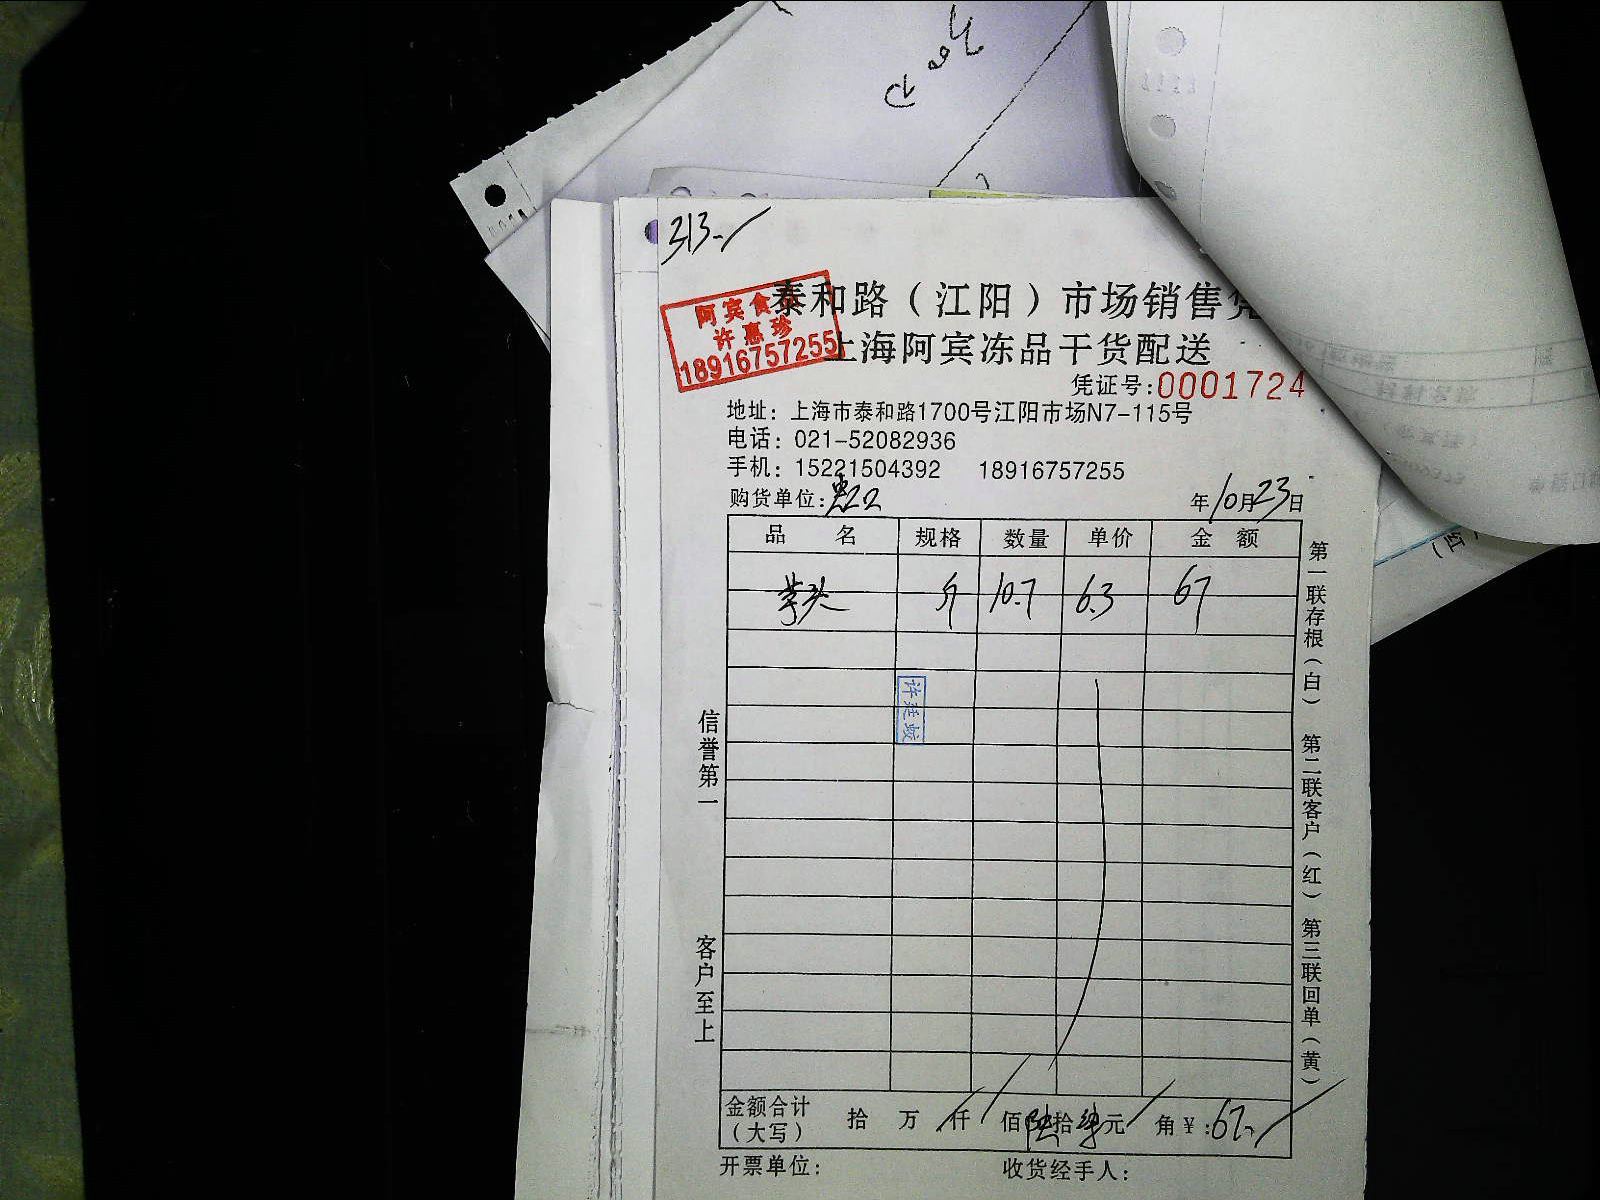 313-
阿宾食
许惠珍
18916757255
泰和路（江阳）市场销售凭
上海阿宾冻品干货配送
凭证号:0001724
地址：上海市泰和路1700号江阳市场N7-115号
电话：021-52082936
手机：15221504392 18916757255
购货单位: 年10月23日
品名 规格 数量 单价 金额
芋头 斤 10.7 6.3 67
许 
信誉第一
客户至上
第一联存根（白） 第二联客户（红） 第三联回单（黄）
金额合计（大写） 拾 万 仟 佰 陆拾柒元 角 ¥:67-
开票单位： 收货经手人：